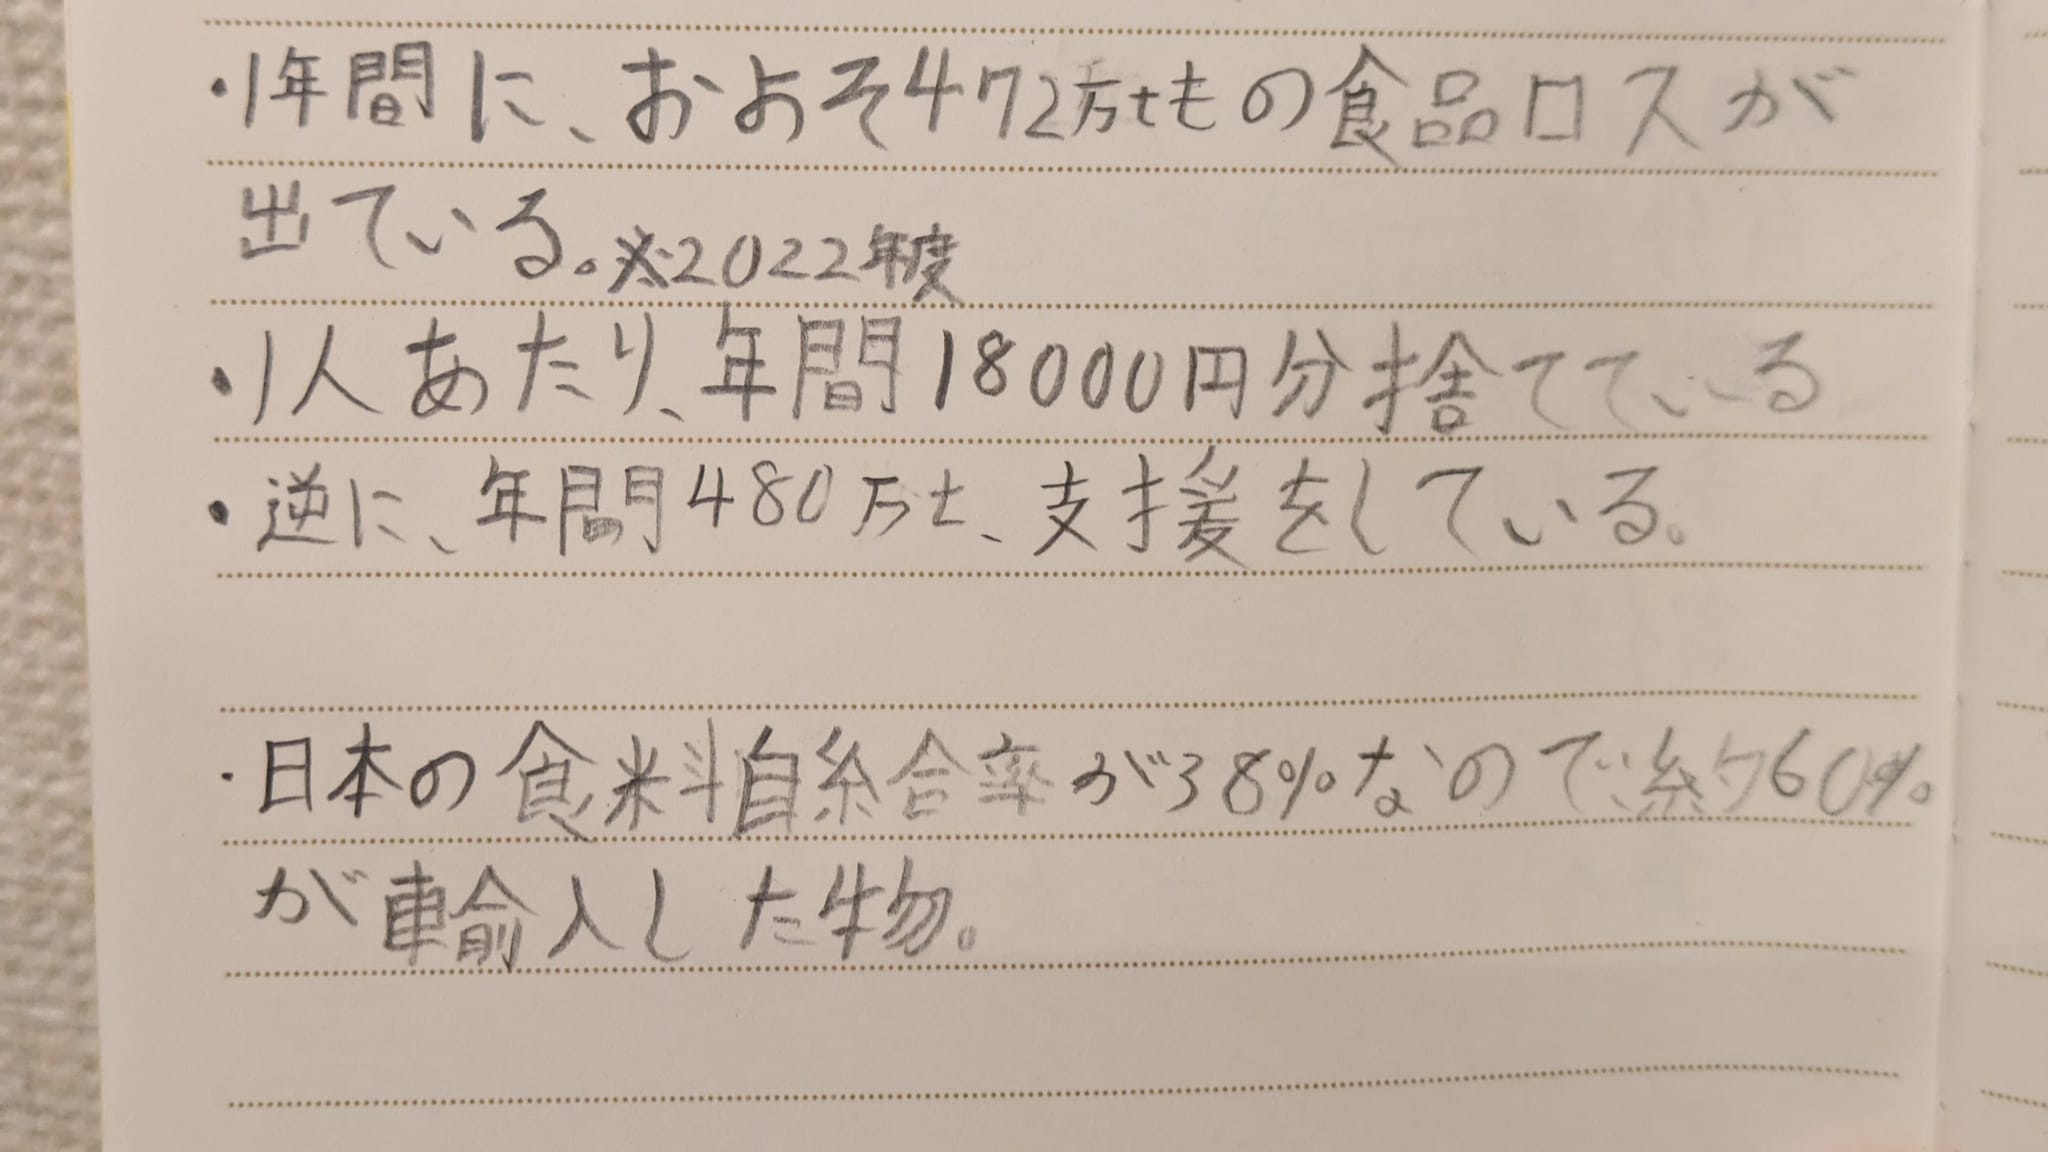 ・1年間に、およそ472万tもの食品ロスが
出ている。※2022年度
・1人あたり、年間18000円分捨てている
・逆に、年間480万t、支援をしている。
・日本の食料自給率が38%なので約60%
が輸入した物。